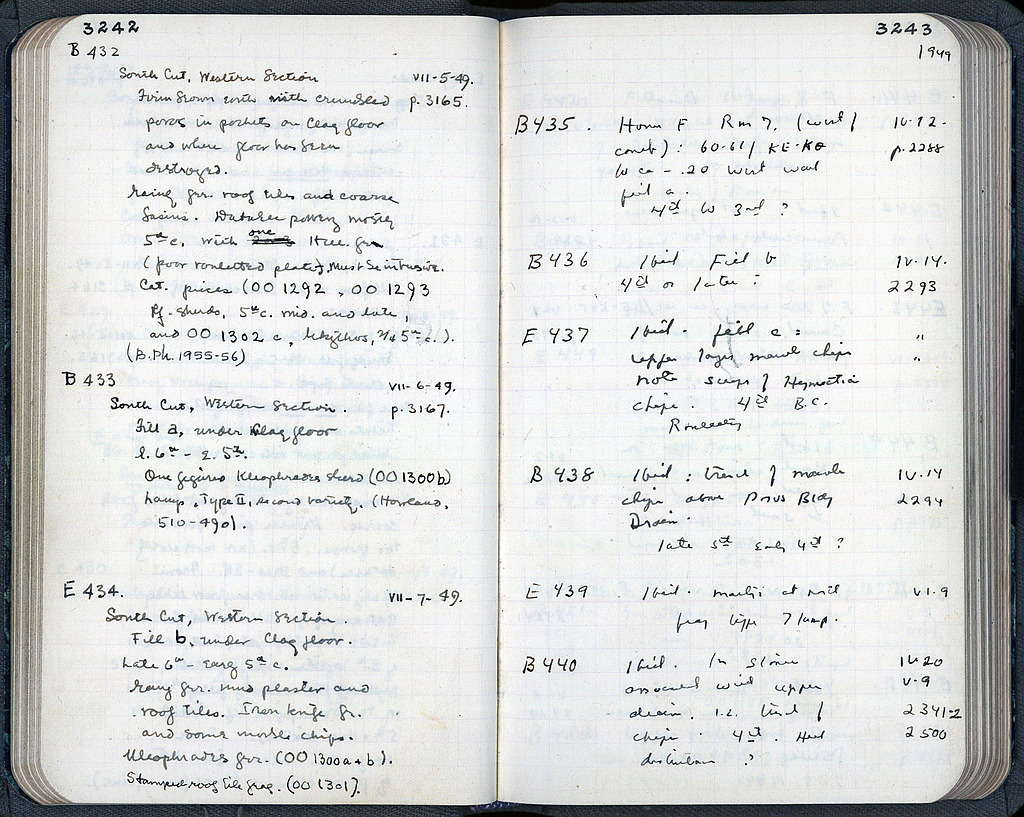 3242
B 432
South Cut, Western Section VII-5-49.
Firm brown earth with crumbled p. 3165.
poros in pockets on Clay floor
and where floor has been
destroyed.
Many frr. roof tiles and coarse
basins. Datable pottery mostly
5th c. with one Hell. fr.
(poor rouletted plate). Must be intrusive.
Cat. pieces (OO 1292, OO 1293
Rf. sherds, 5th c. mid. and late,
and OO 1302 c, lekythos, 5th c.).
(B.Ph. 1955-56)
B 433 VII-6-49.
South Cut, Western Section. p. 3167.
Fill a, under Clay floor
l. 6th - e. 5th.
One figured Kleophrades sherd (OO 1300 b)
Lamp, Type II, second variety. (Howland,
510-490).
E 434. VII-7-49.
South Cut, Western Section.
Fill b, under Clay floor.
Late 6th - Early 5th c.
Many frr. mud plaster and
roof tiles. Iron knife fr.
and some marble chips.
Kleophrades frr. (OO 1300 a + b).
Stamped roof tile frag. (OO 1301).
3243
1949
B 435. House F Rm 7, (west
): 60-61/ ΚΕ-ΚΘ IV-12.
p. 2288
to ca - .20 west wall
fill a
4th to 3rd ?
B 436 Ibid Fill b IV-14.
4th or later 2293
E 437 Ibid. fill c. "
upper layer marble chips "
note scraps of Hymettian
chips. 4th B.C.
Roulettes
B 438 Ibid: tread of marble IV-14
chips above Poros Bldg 2294
Drain.
late 5th early 4th ?
E 439 Ibid. VI-9
type 7 lamp.
B 440 Ibid. In stones IV-20
associated with upper V-9
drain. i.e. tread of 2341-2
chips 4th. Hell 2500
disturbance ?